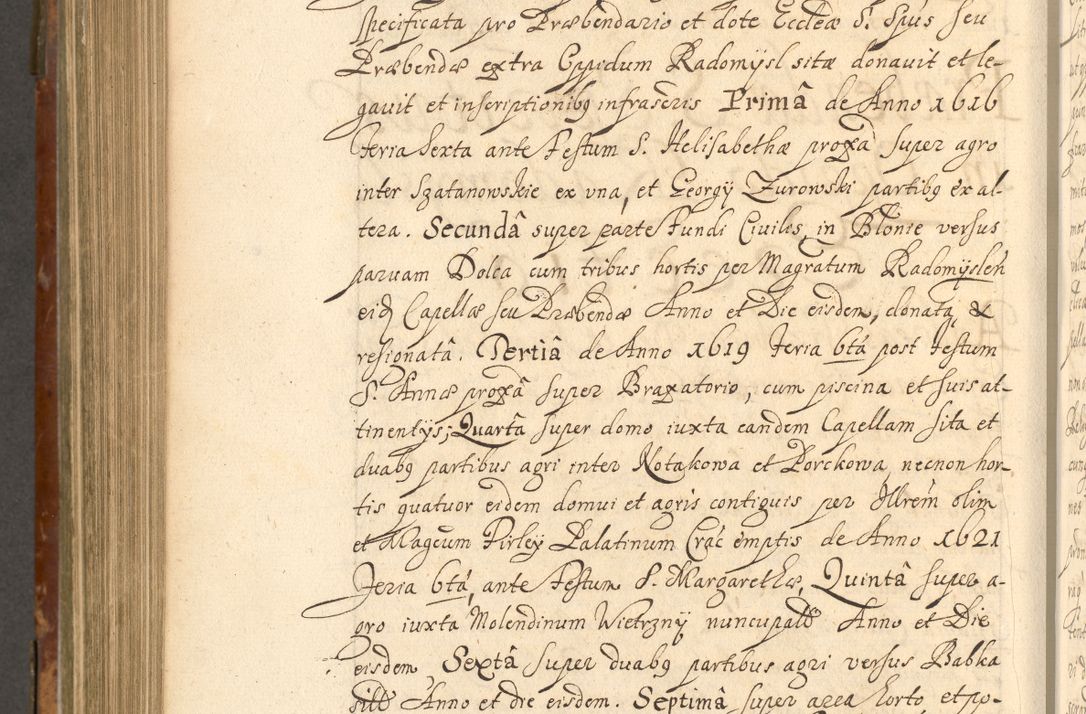 specificata pro Præbendario et dote Eccleæ S. Spůs seu
Præbendæ extra Oppidum Radomysl sitæ donauit et le-
gauit et inscriptionibꝫ infrascris Primâ de Anno 1616
feria Sexta ante Festum S. Helisabethæ proxâ super agro
inter Szatanowskie ex vna, et Georgÿ Zurowski partibꝫ ex al-
tera. Secundâ super parte Fundi Ciuilis, in Blonie versus
paruam Dolca cum tribus hortis per Magratum Radomÿsleń
eid Capellæ seu Præbendæ Anno et Die eisdem, donatą, &
resignatâ. Tertiâ de Anno 1619 feria 6tâ post Festum
S. Annæ proxâ super Braxatorio, cum piscina et suis at-
tinentÿs; Quartâ super domo iuxta eandem Capellam sita et
duabꝫ partibus agri inter Kotakowa et Porckowa, necnon hor-
tis quatuor eidem domui et agris contiguis per Illrem olim
et Magcum Firleÿ Palatinum Crac emptis de Anno 1621
feria 6tâ, ante Festum S. Margarethæ, Quintâ super a-
gro iuxta Molendinum Wietrznÿ nuncupato Anno et Die
eisdem, Sextâ super duabꝫ partibus agri versus Babka
sitto Anno et die eisdem. Septimâ super area horto et po-